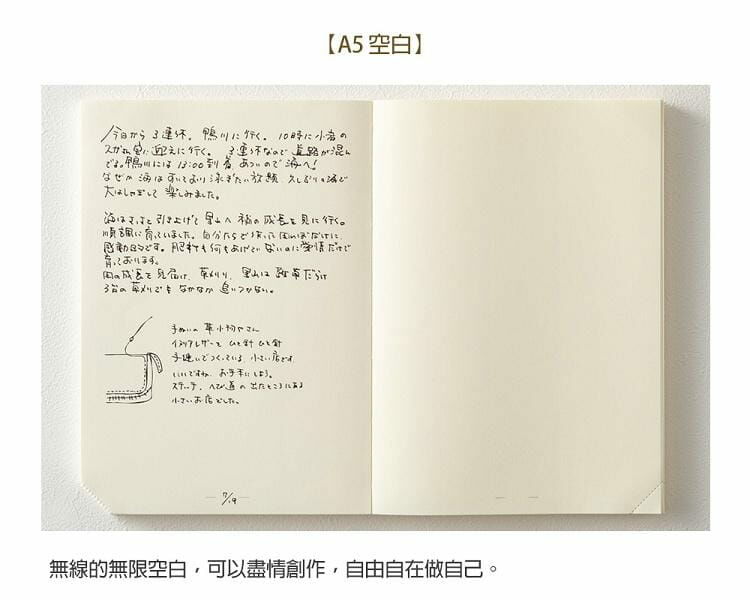 【A5 空白】
今日から3連休。鴨川に行く。10時に小者の
迎えに行く。3連休なので道路が混ん
でる。鴨川には13:00到着。あついので海へ!
なぜか海はすいており泳ぎたい放題。久しぶりの海で
大はしゃぎして楽しみました。
海はさっさと引き上げて里山へ 稲の成長を見に行く。
順調に育っていました。自分たちで
感動的です。肥料も何もあげていないのに愛情だけで
育っております。
田の成長を見届け、草刈り、里山は雑草だらけ
3回の草刈りでもなかなか追いつかない。
手ぬいの革小物やさん
イタリアレザーを ひと針ひと針
手縫いでつくっている、小さい店です。
いいですね。お手本にしよう。
ステッチ、へび道の出たところにある
小さいお店でした。
7/19
無線的無限空白，可以盡情創作，自由自在做自己。